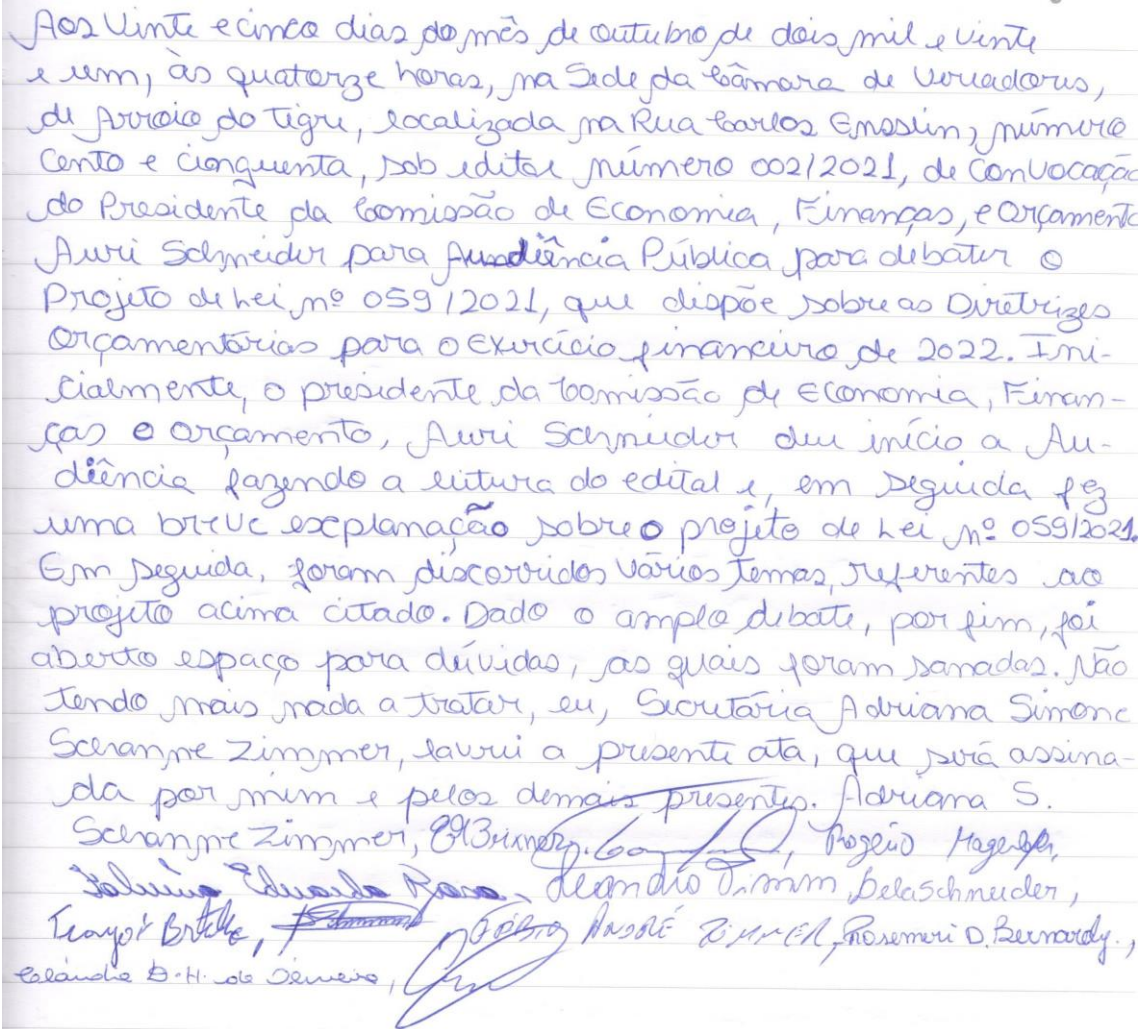 Aos Vinte e cinco dias do mês de outubro de dois mil e vinte
e um, às quatorze horas, na Sede da Câmara de Vereadores,
de Arroio do Tigre, localizada na Rua Carlos Ensslin, número
Cento e cinquenta, sob edital número 002/2021, de Convocação
do Presidente da Comissão de Economia, Finanças, e Orçamento
Auri Schneider para Audiência Pública para debater o
Projeto de Lei nº 059/2021, que dispõe sobre as Diretrizes
Orçamentárias para o Exercício financeiro de 2022. Ini-
cialmente, o presidente da Comissão de Economia, Finan-
ças e orçamento, Auri Schneider deu início a Au-
diência fazendo a leitura do edital e, em seguida fez
uma breve explanação sobre o projeto de Lei nº 059/2021.
Em seguida, foram discorridos vários temas, referentes ao
projeto acima citado. Dado o amplo debate, por fim, foi
aberto espaço para dúvidas, as quais foram sanadas. Não
tendo mais nada a tratar, eu, Secretária Adriana Simone
Scheanne Zimmer, lavrei a presente ata, que será assina-
da por mim e pelos demais presentes. Adriana S.
Scheanne Zimmer, Rogério
Eduardo Leandro Timm, Schneider,
FÁBIO ANDRÉ ZIMMER, Rosemeri D. Bernardy.,
D. H. de